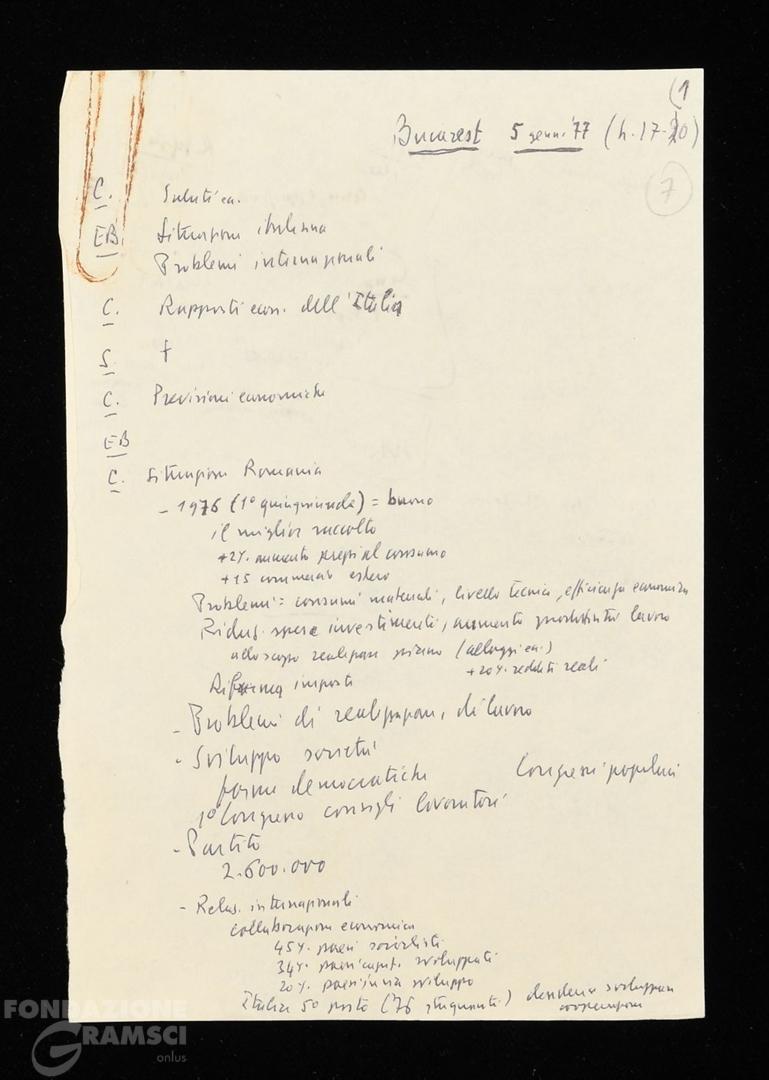 (1
Bucarest 5 genn. '77 (h. 17.30)
7
C. Saluti ecc.
EB. Situazione italiana
Problemi internazionali
C. Rapporti econ. dell'Italia
S. f
C. Previsioni economiche
EB
C. Situazione Romania
- 1976 (1° quinquennale) = buono
il miglior raccolto
+2% aumento prezzi al consumo
+15 commercio estero
Problemi = consumi materiali, livello tecnico, efficienza economica
Riduz. spese investimenti, aumento produttività lavoro
allo scopo realizzare piano (alloggi ecc.)
+20% redditi reali
Riforma imposte
- Problemi di realizzazione, di lavoro
- Sviluppo società
forme democratiche Congressi popolari
1° Congresso consigli lavoratori
- Partito
2.600.000
- Relaz. internazionali
collaborazione economica
45% paesi socialisti
34% paesi capit. sviluppati
20% paesi in via sviluppo
Italia 5° posto (76 stagnante) desidera sviluppare
cooperazione
FONDAZIONE
GRAMSCI
onlus